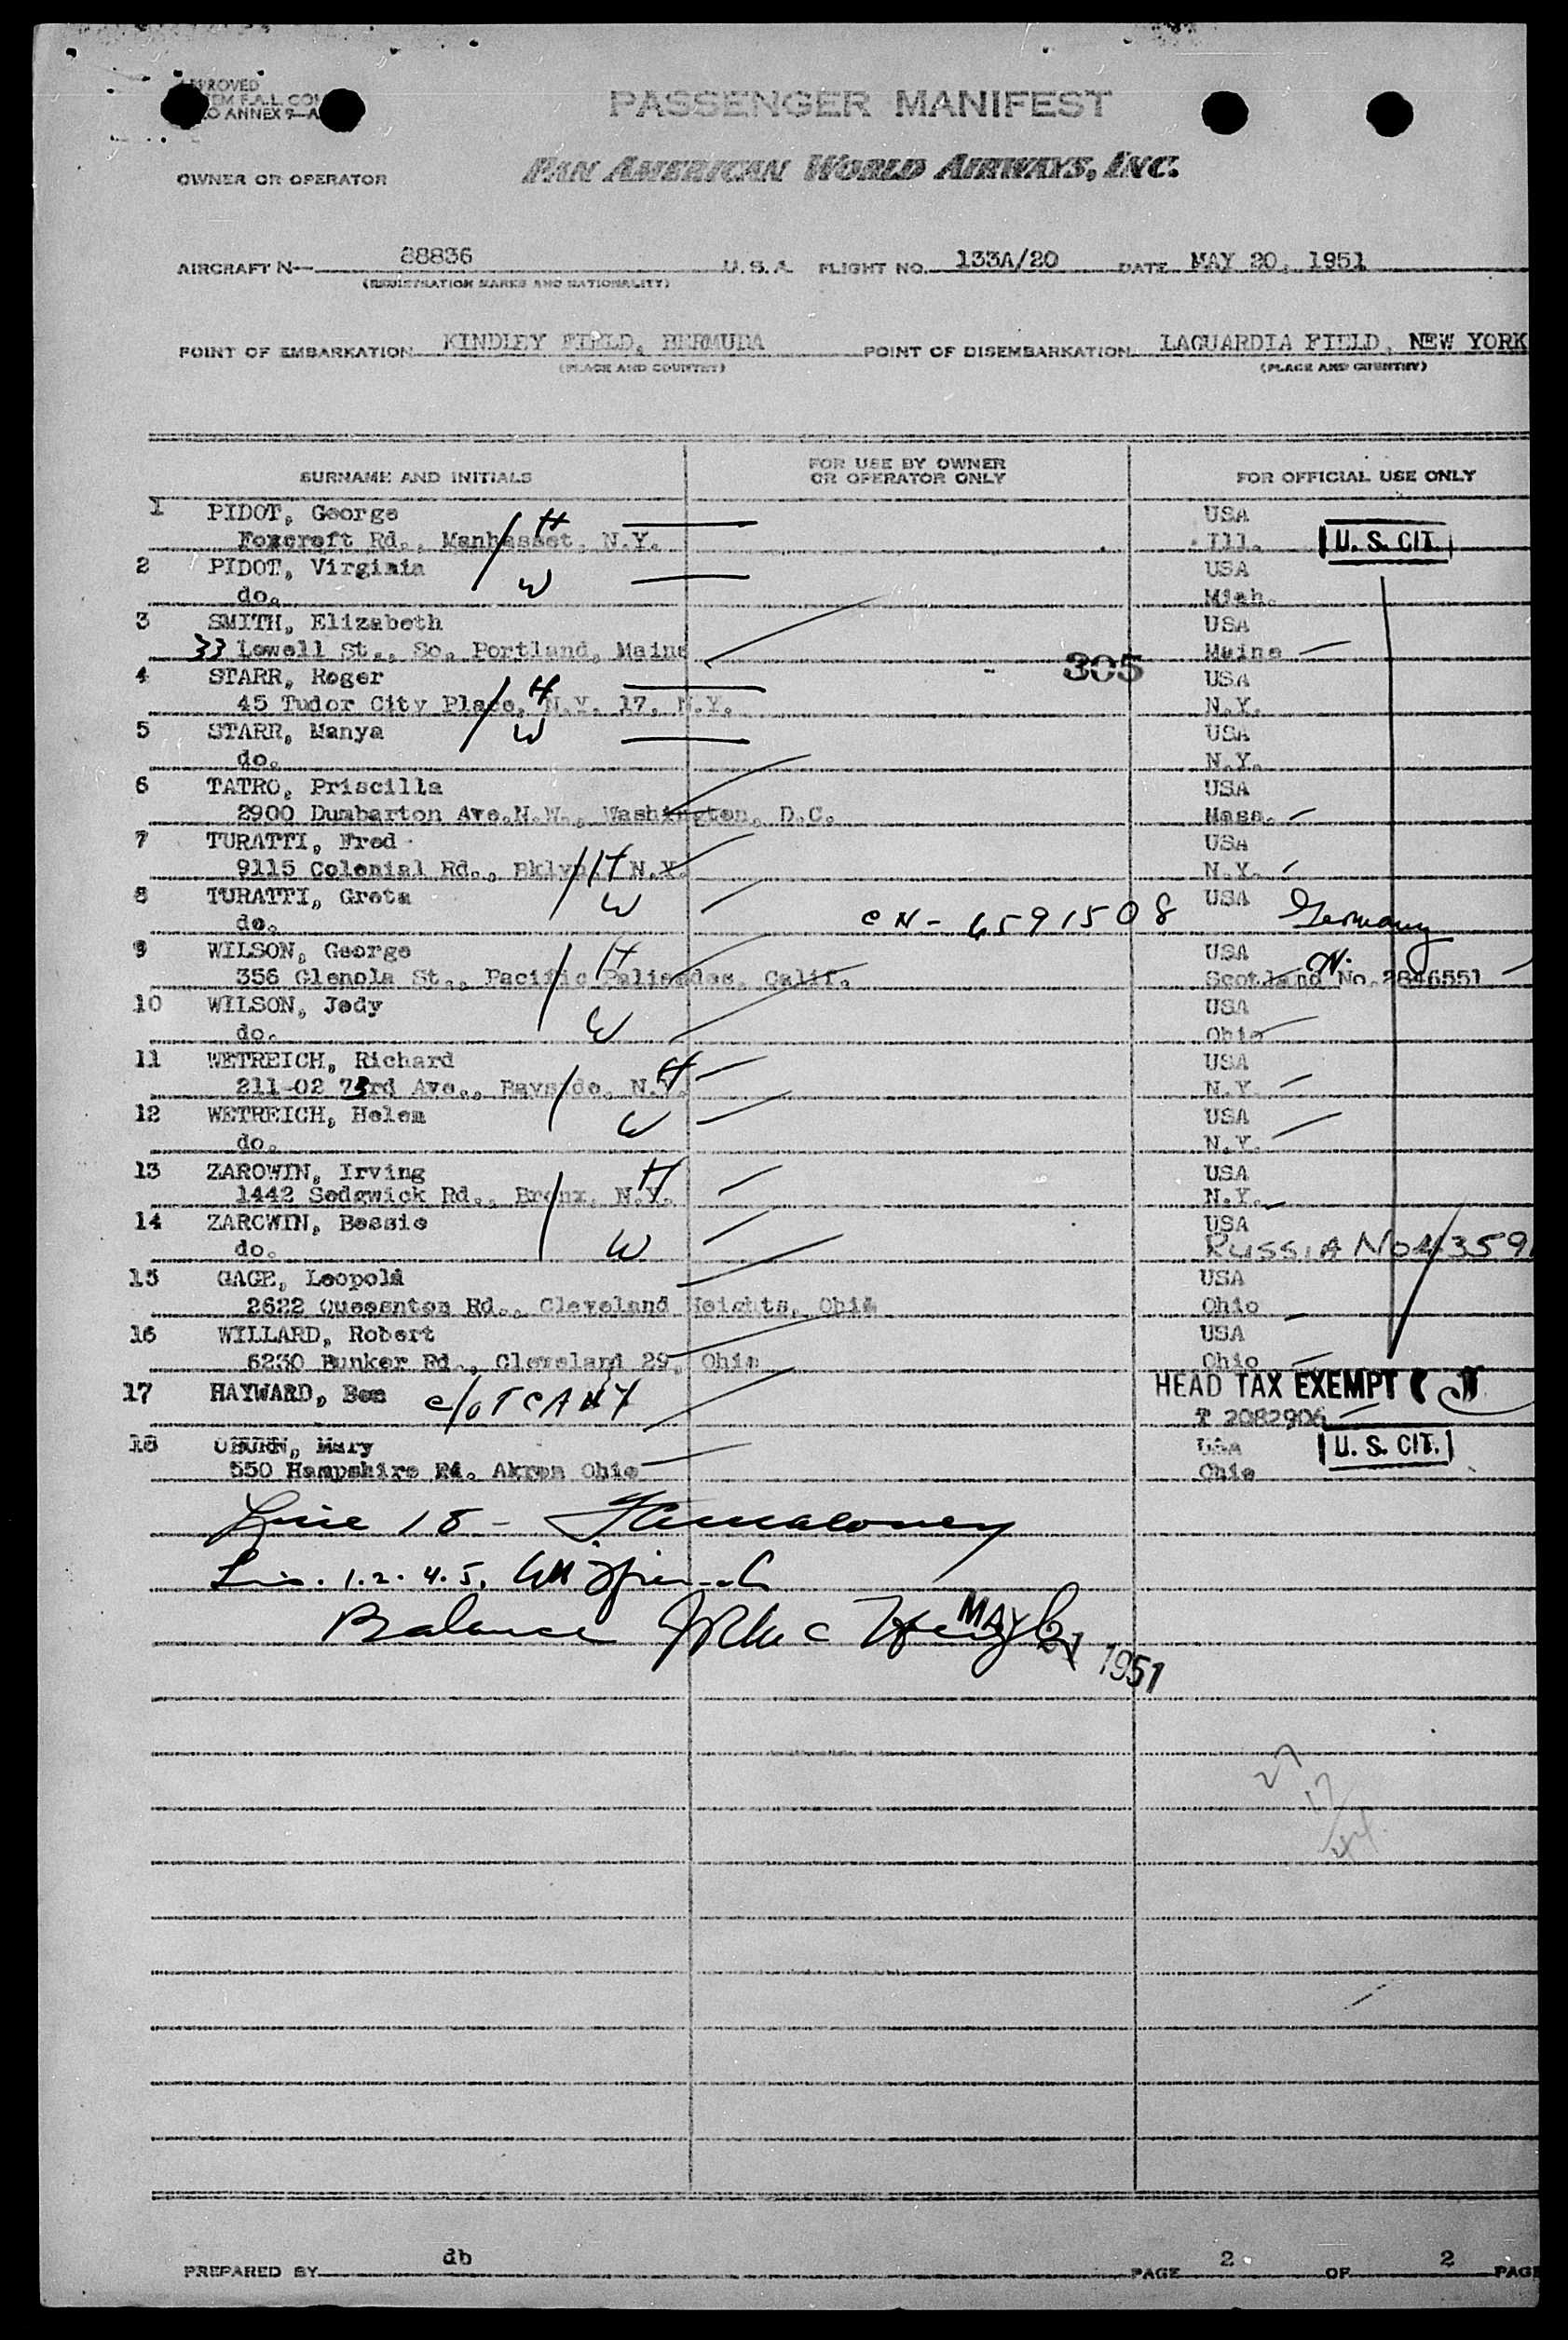 APPROVED
F.A.L. COM
ANNEX 9-A
PASSENGER MANIFEST
OWNER OR OPERATOR
PAN AMERICAN WORLD AIRWAYS, INC.
AIRCRAFT N- 88836 U.S.A. FLIGHT NO. 133A/20 DATE MAY 20, 1951
(REGISTRATION MARKS AND NATIONALITY)
POINT OF EMBARKATION KINDLEY FIELD, BERMUDA POINT OF DISEMBARKATION LAGUARDIA FIELD, NEW YORK
(PLACE AND COUNTRY) (PLACE AND COUNTRY)
SURNAME AND INITIALS FOR USE BY OWNER OR OPERATOR ONLY FOR OFFICIAL USE ONLY
1 PIDOT, George H USA
Foxcroft Rd., Manhasset, N.Y. Ill. U. S. CIT.
2 PIDOT, Virginia W USA
do. Mich.
3 SMITH, Elizabeth USA
33 Lowell St., So. Portland, Maine Maine
305
4 STARR, Roger H USA
45 Tudor City Place, N.Y. 17, N.Y. N.Y.
5 STARR, Manya W USA
do. N.Y.
6 TATRO, Priscilla USA
2900 Dumbarton Ave.N.W., Washington, D.C. Mass.
7 TURATTI, Fred USA
9115 Colonial Rd., Bklyn, N.Y. H N.Y.
8 TURATTI, Greta W USA
do. CN- 6591508 Germany
9 WILSON, George H USA
356 Glenola St., Pacific Palisades, Calif. Scotland N. No.2846551
10 WILSON, Jedy W USA
do. Ohio
11 WETREICH, Richard H USA
211-02 73rd Ave., Bayside, N.Y. N.Y.
12 WETREICH, Helen W USA
do. N.Y.
13 ZAROWIN, Irving H USA
1442 Sedgwick Rd., Bronx, N.Y. N.Y.
14 ZAROWIN, Bessie W USA
do. RUSSIA No
15 GAGE, Leopold USA
2622 Queenston Rd., Cleveland Heights, Ohio Ohio
16 WILLARD, Robert USA
6230 Bunker Rd., Cleveland 29, Ohio Ohio
17 HAYWARD, Ben c/o TCA NY HEAD TAX EXEMPT
T 2082906
18 OBURN, Mary USA U. S. CIT.
550 Hampshire Rd. Akron Ohio Ohio
Line 18 -
Lin. 1.2.4.5.
Balance
MAY 21 1951
27
17
44
PREPARED BY db PAGE 2 OF 2 PAGE